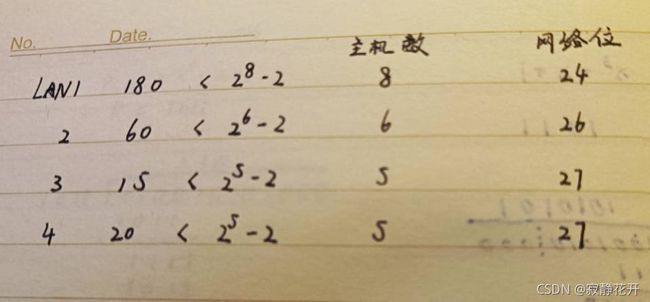 No. Date.
主机数 网络位
LAN1 180 < 2^8-2 8 24
2 60 < 2^6-2 6 26
3 15 < 2^5-2 5 27
4 20 < 2^5-2 5 27
CSDN @寂静花开